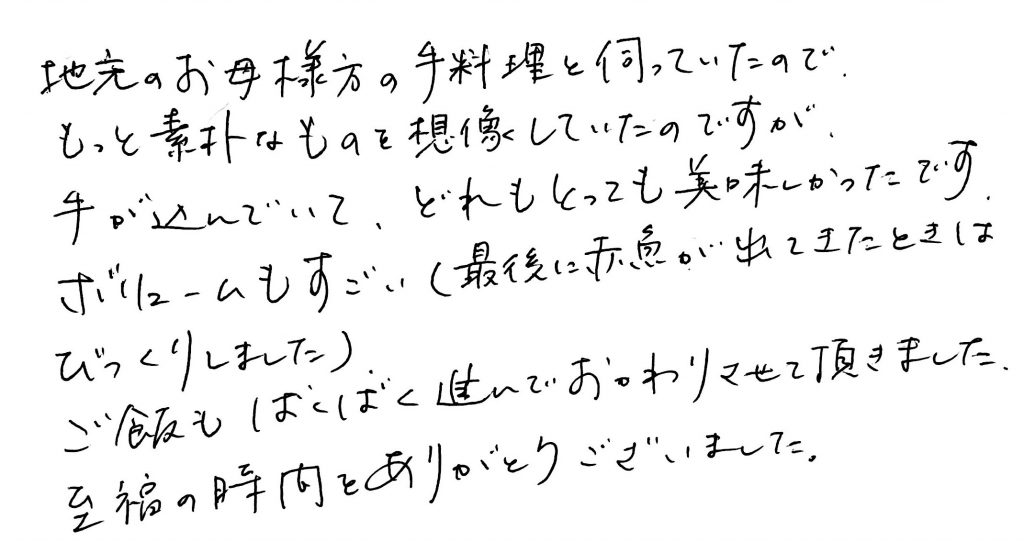 地元のお母様方の手料理と伺っていたので、
もっと素朴なものを想像していたのですが、
手が込んでいて、どれもとっても美味しかったです。
ボリュームもすごい(最後に赤魚が出てきたときは
びっくりしました)。
ご飯もばくばく進んでおかわりさせて頂きました。
至福の時間をありがとうございました。